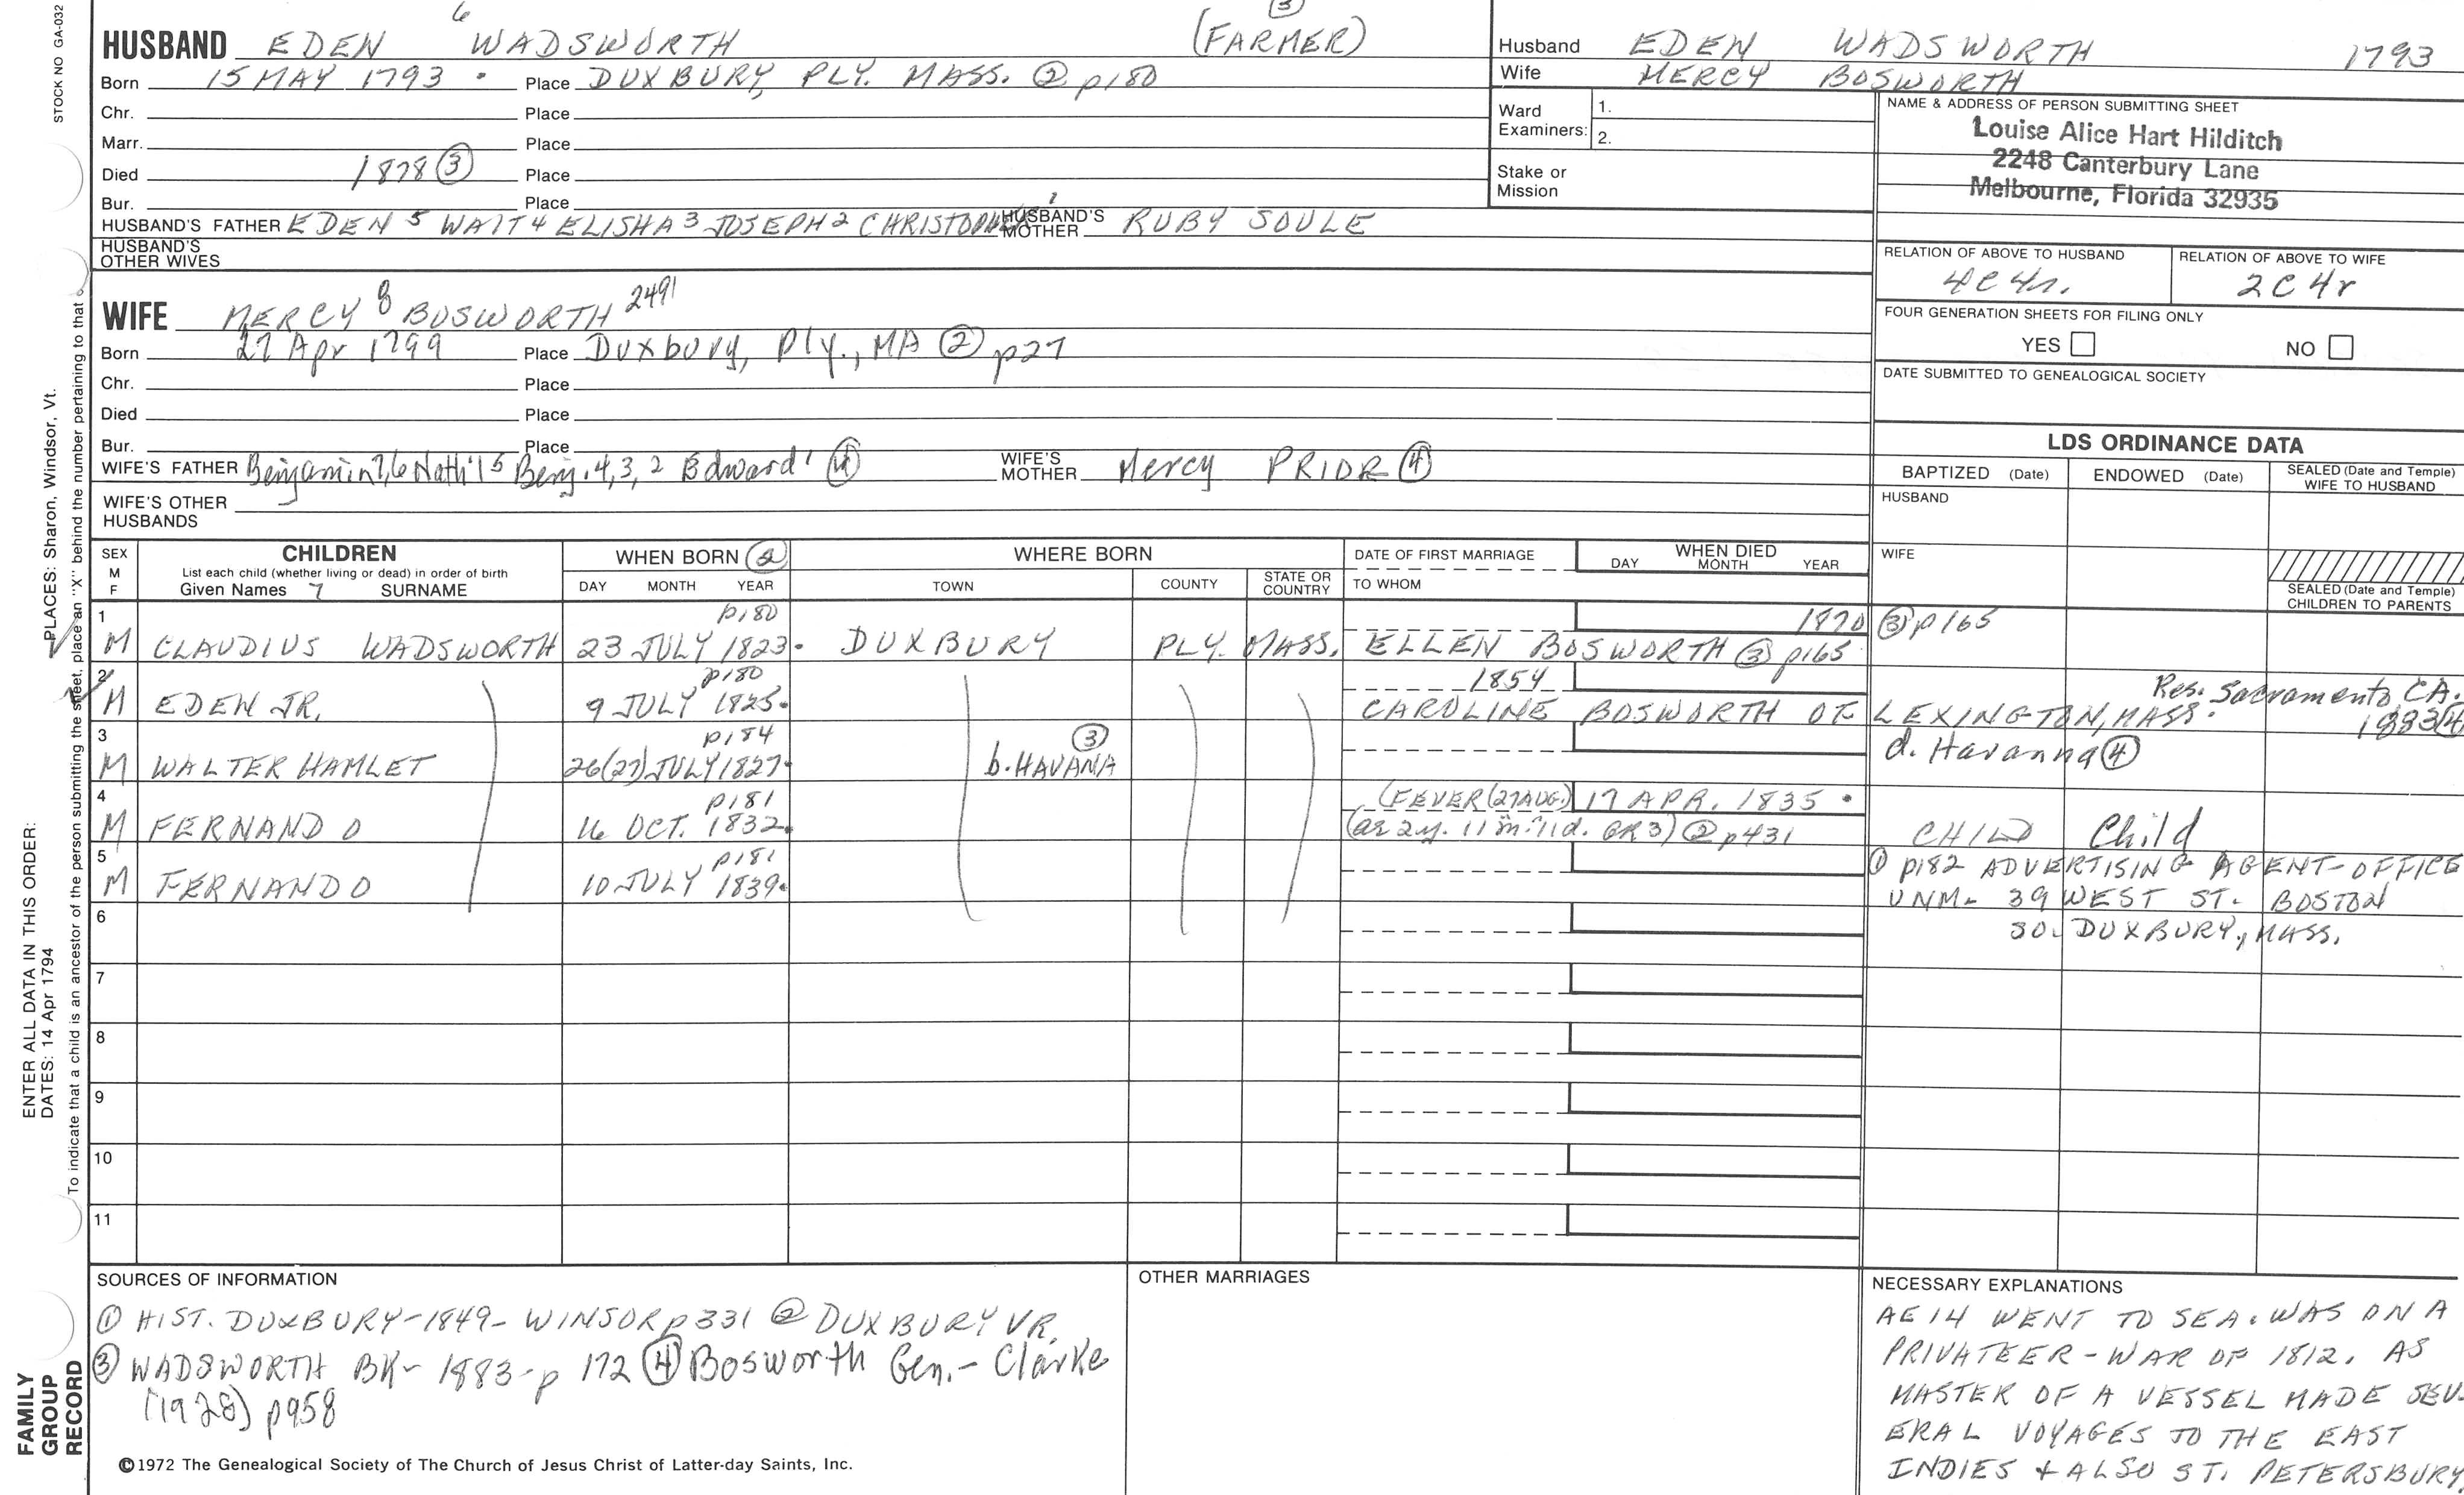 STOCK NO GA-032
6
3
HUSBAND EDEN WADSWORTH (FARMER)
Born 15 MAY 1793 . Place DUXBURY, PLY. MASS. ② p180
Chr. Place
Marr. Place
Died 1878 ③ Place
Bur. Place
HUSBAND'S FATHER EDEN 5 WAIT 4 ELISHA 3 JOSEPH 2 CHRISTOPHER 1 HUSBAND'S MOTHER RUBY SOULE
HUSBAND'S OTHER WIVES
WIFE MERCY 8 BOSWORTH 2491
Born 27 Apr 1799 Place Duxbury, Ply., MA ② p27
Chr. Place
Died Place
Bur. Place
WIFE'S FATHER Benjamin 7,6 Nath'l 5 Benj. 4,3,2 Edward 1 ④ WIFE'S MOTHER Mercy PRIOR ④
WIFE'S OTHER HUSBANDS
Husband EDEN WADSWORTH 1793
Wife MERCY BOSWORTH
Ward Examiners: 1.
2.
Stake or Mission
NAME & ADDRESS OF PERSON SUBMITTING SHEET
Louise Alice Hart Hilditch
2248 Canterbury Lane
Melbourne, Florida 32935
RELATION OF ABOVE TO HUSBAND RELATION OF ABOVE TO WIFE
4C4r. 2C4r
FOUR GENERATION SHEETS FOR FILING ONLY
YES NO
DATE SUBMITTED TO GENEALOGICAL SOCIETY
LDS ORDINANCE DATA
BAPTIZED (Date) ENDOWED (Date) SEALED (Date and Temple) WIFE TO HUSBAND
HUSBAND
WIFE
SEALED (Date and Temple) CHILDREN TO PARENTS
SEX M F CHILDREN WHEN BORN ② WHERE BORN DATE OF FIRST MARRIAGE WHEN DIED
List each child (whether living or dead) in order of birth
Given Names 7 SURNAME DAY MONTH YEAR TOWN COUNTY STATE OR COUNTRY TO WHOM DAY MONTH YEAR
1 p180 1870 ③ p165
M CLAUDIUS WADSWORTH 23 JULY 1823. DUXBURY PLY. MASS. ELLEN BOSWORTH ③ p165
2 p180 1854 Res. Sacramento, CA.
M EDEN JR. 9 JULY 1825. CAROLINE BOSWORTH OF LEXINGTON, MASS. 1883 ④
3 p184 ③
M WALTER HAMLET 26(27) JULY 1827. b. HAVANA d. Havanna ④
4 p181 (FEVER (27 AUG.) 17 APR. 1835 .
M FERNANDO 16 OCT. 1832. (ae 2y. 11m. 11d. GR3) ② p431 CHILD Child
5 p181 ① p182 ADVERTISING AGENT-OFFICE
M FERNANDO 10 JULY 1839. UNM- 39 WEST ST. BOSTON
6 SO. DUXBURY, MASS.
7
8
9
10
11
SOURCES OF INFORMATION
① HIST. DUXBURY-1849- WINSOR p331 ② DUXBURY VR.
③ WADSWORTH BK- 1883-p 172 ④ Bosworth Gen.- Clarke
(1928) p958
©1972 The Genealogical Society of The Church of Jesus Christ of Latter-day Saints, Inc.
OTHER MARRIAGES
NECESSARY EXPLANATIONS
AE 14 WENT TO SEA. WAS ON A
PRIVATEER-WAR OF 1812. AS
MASTER OF A VESSEL MADE SEV-
ERAL VOYAGES TO THE EAST
INDIES + ALSO ST. PETERSBURY
ENTER ALL DATA IN THIS ORDER:
DATES: 14 Apr 1794 PLACES: Sharon, Windsor, Vt.
To indicate that a child is an ancestor of the person submitting the sheet, place an "X" behind the number pertaining to that
FAMILY
GROUP
RECORD